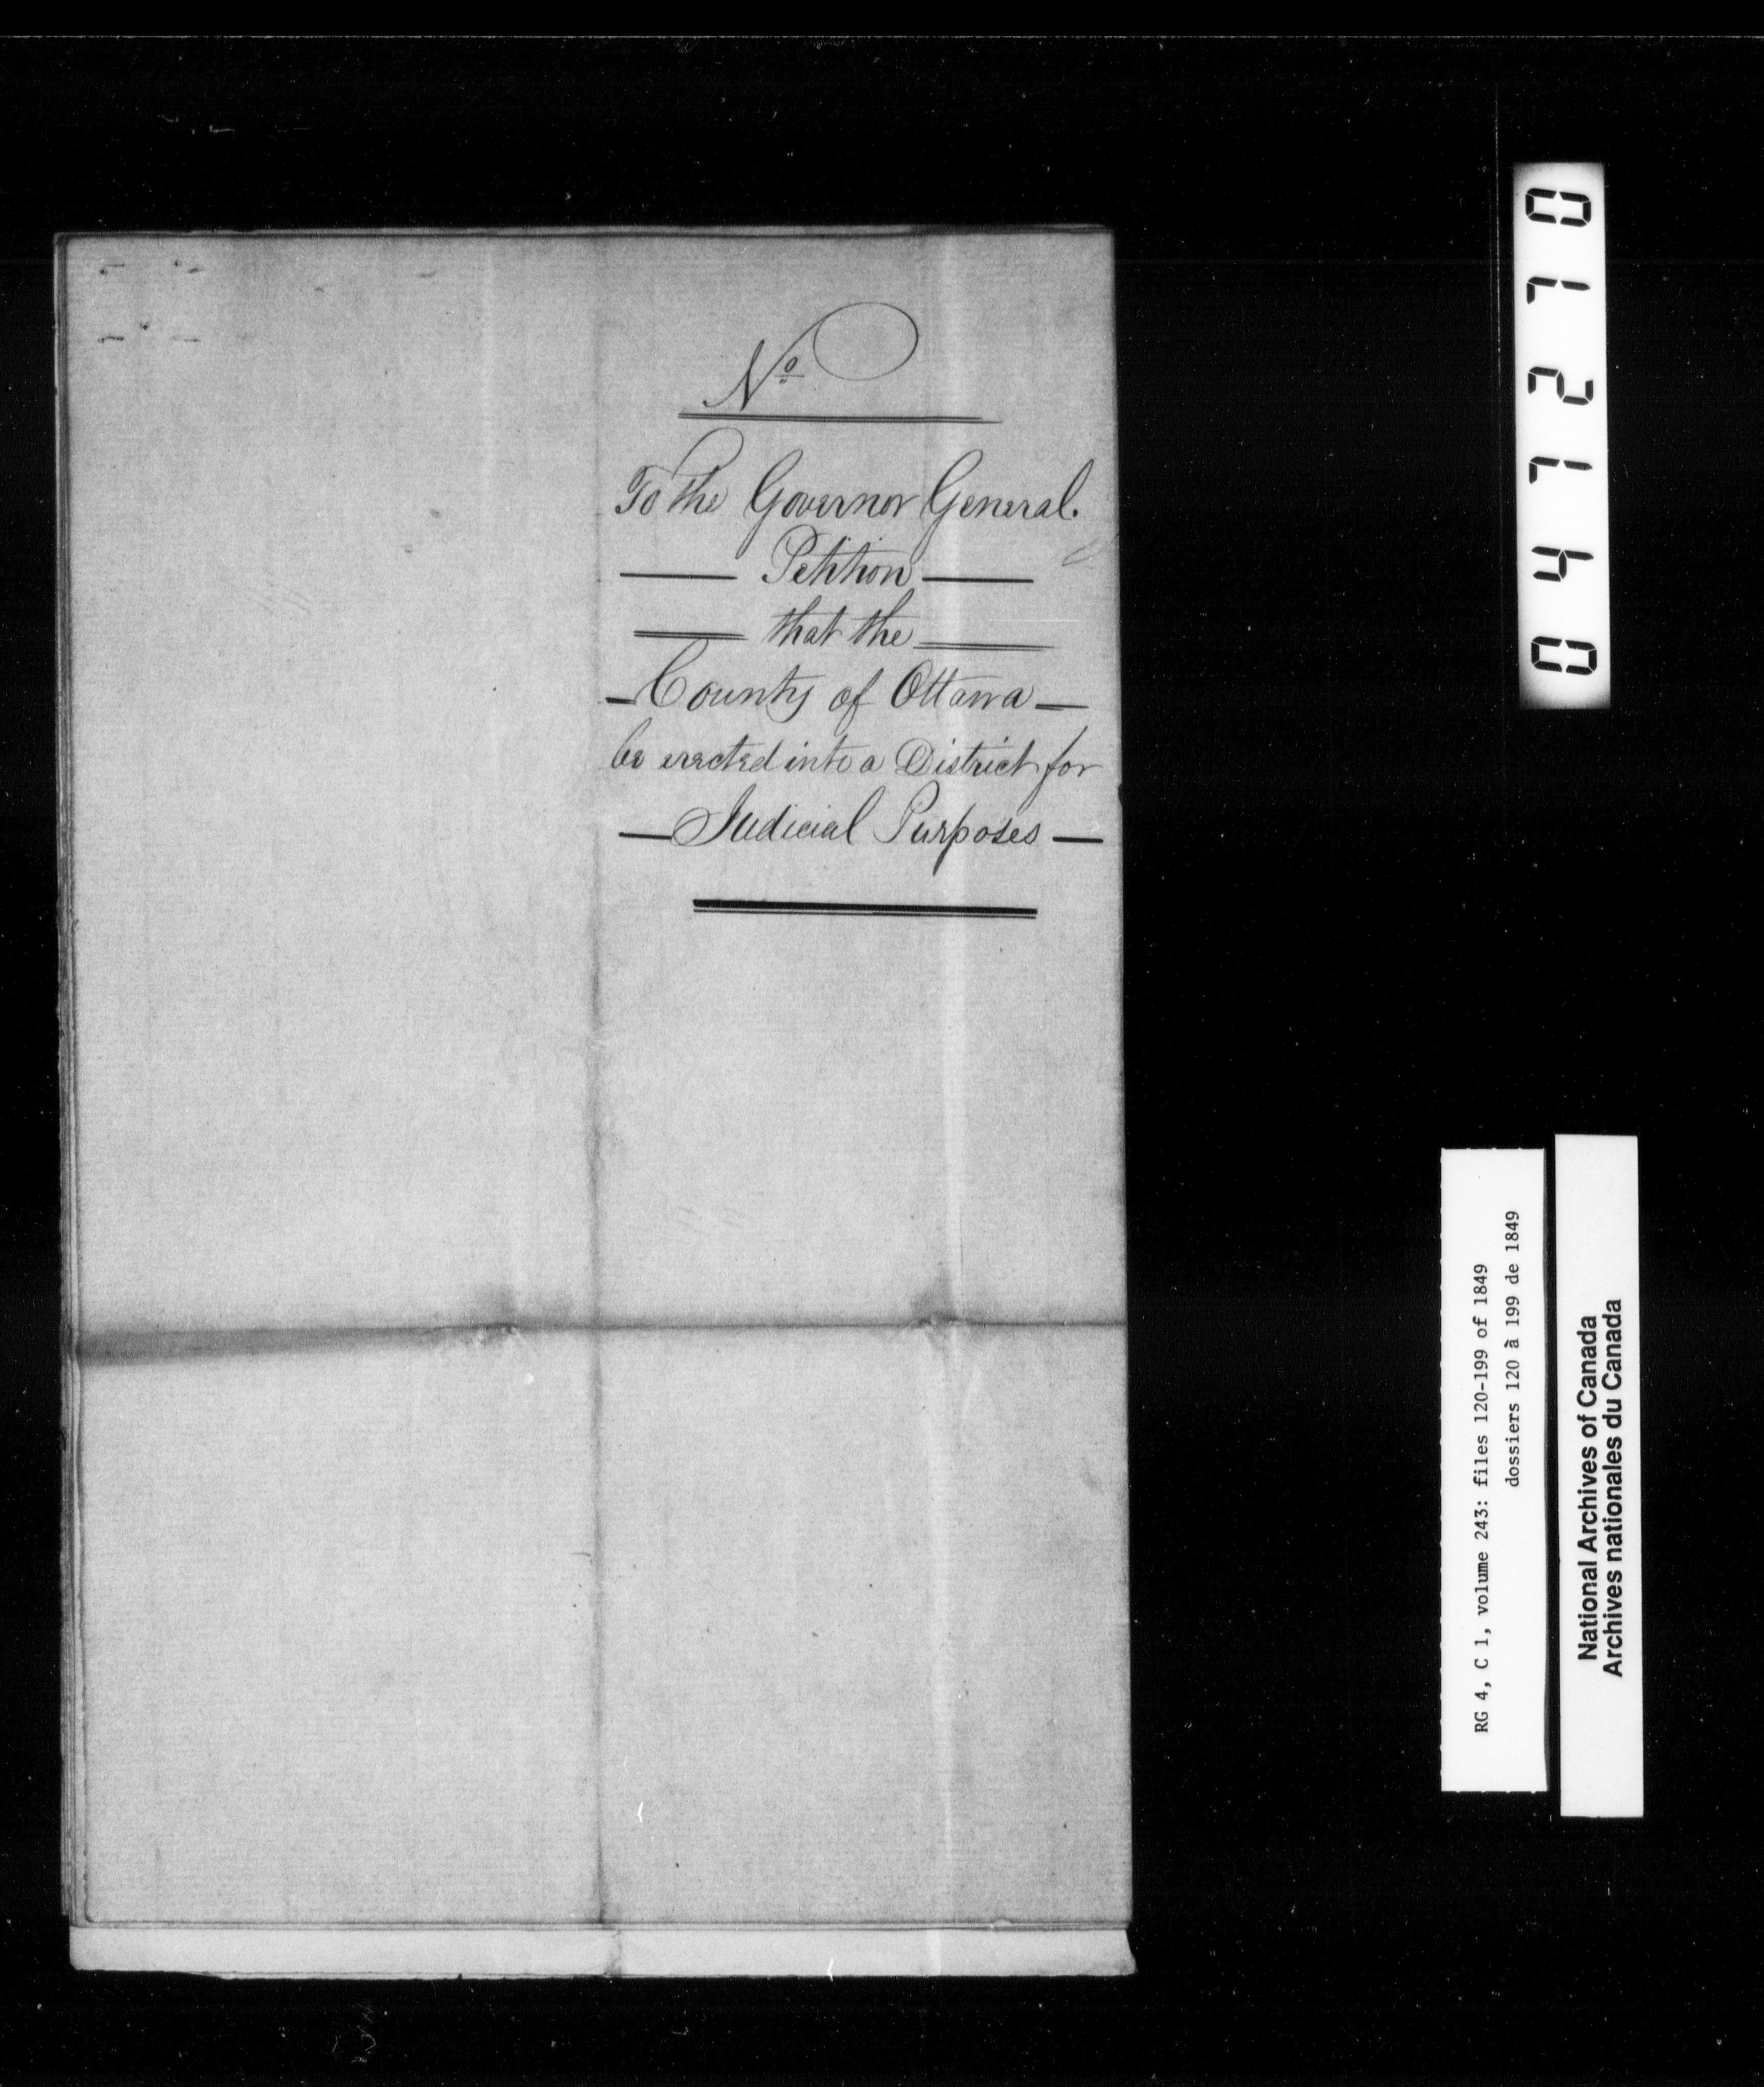 No
To the Governor General.
Petition
that the
County of Ottawa
be erected into a District for
Judicial Purposes
047270
RG 4, C 1, volume 243: files 120-199 of 1849
dossiers 120 à 199 de 1849
National Archives of Canada
Archives nationales du Canada